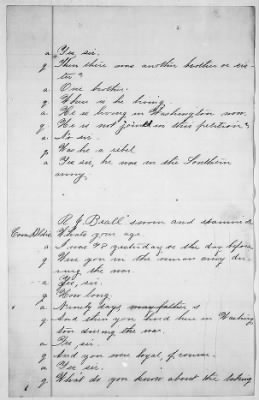 a Yes, sir.
q Then there was another brother or sis-
ter?
a One brother.
q Where is he living
a He is living in Washington now.
q He is not joined in this petition?
a No sir.
q Was he a rebel
a Yes sir, he was in the Southern
army.
R J Beall sworn and examined
Com. What's your age.
a I was 48 yesterday or the day before
q Were you in the union army du-
ring the war.
a Yes, sir.
q How long
a Ninety days,
q And then you lived here in Washing-
ton during the war.
a Yes, sir.
q And you were loyal, of course.
a Yes sir.
q What do you know about the taking